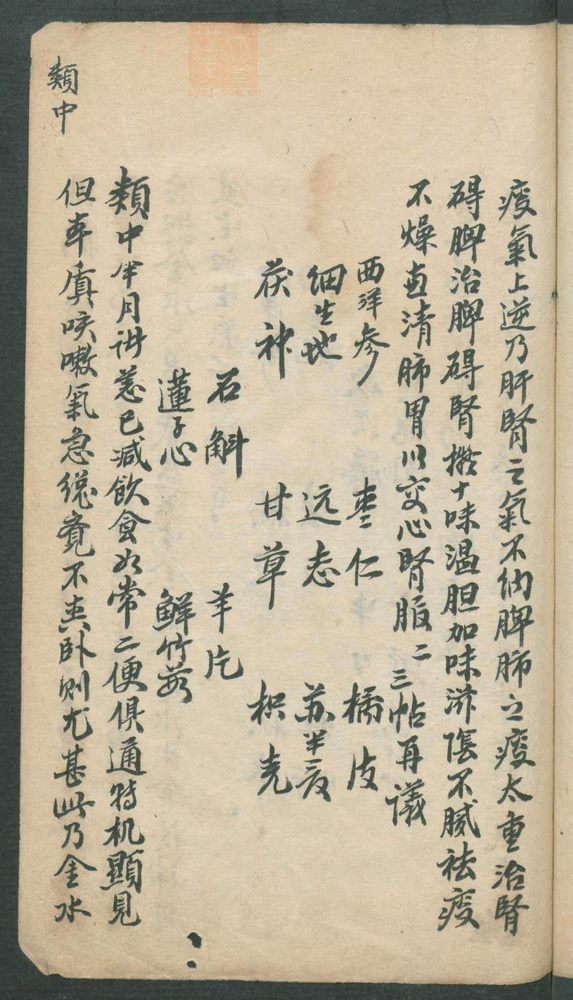 痰氣上逆乃肝腎之氣不納脾肺之痰太重治腎
碍脾治脾碍腎擬十味温胆加味滋陰不膩祛痰
不燥直清肺胃以交心腎服二三帖再議
西洋参 枣仁 橘皮
细生地 远志 苏半夏
茯神 甘草 枳壳
石斛 羊片
蓮子心 鲜竹茹
類中半月諸恙已減飲食如常二便俱通轉机顯見
但年 咳嗽氣急總覺不爽卧則尤甚此乃金水
類中